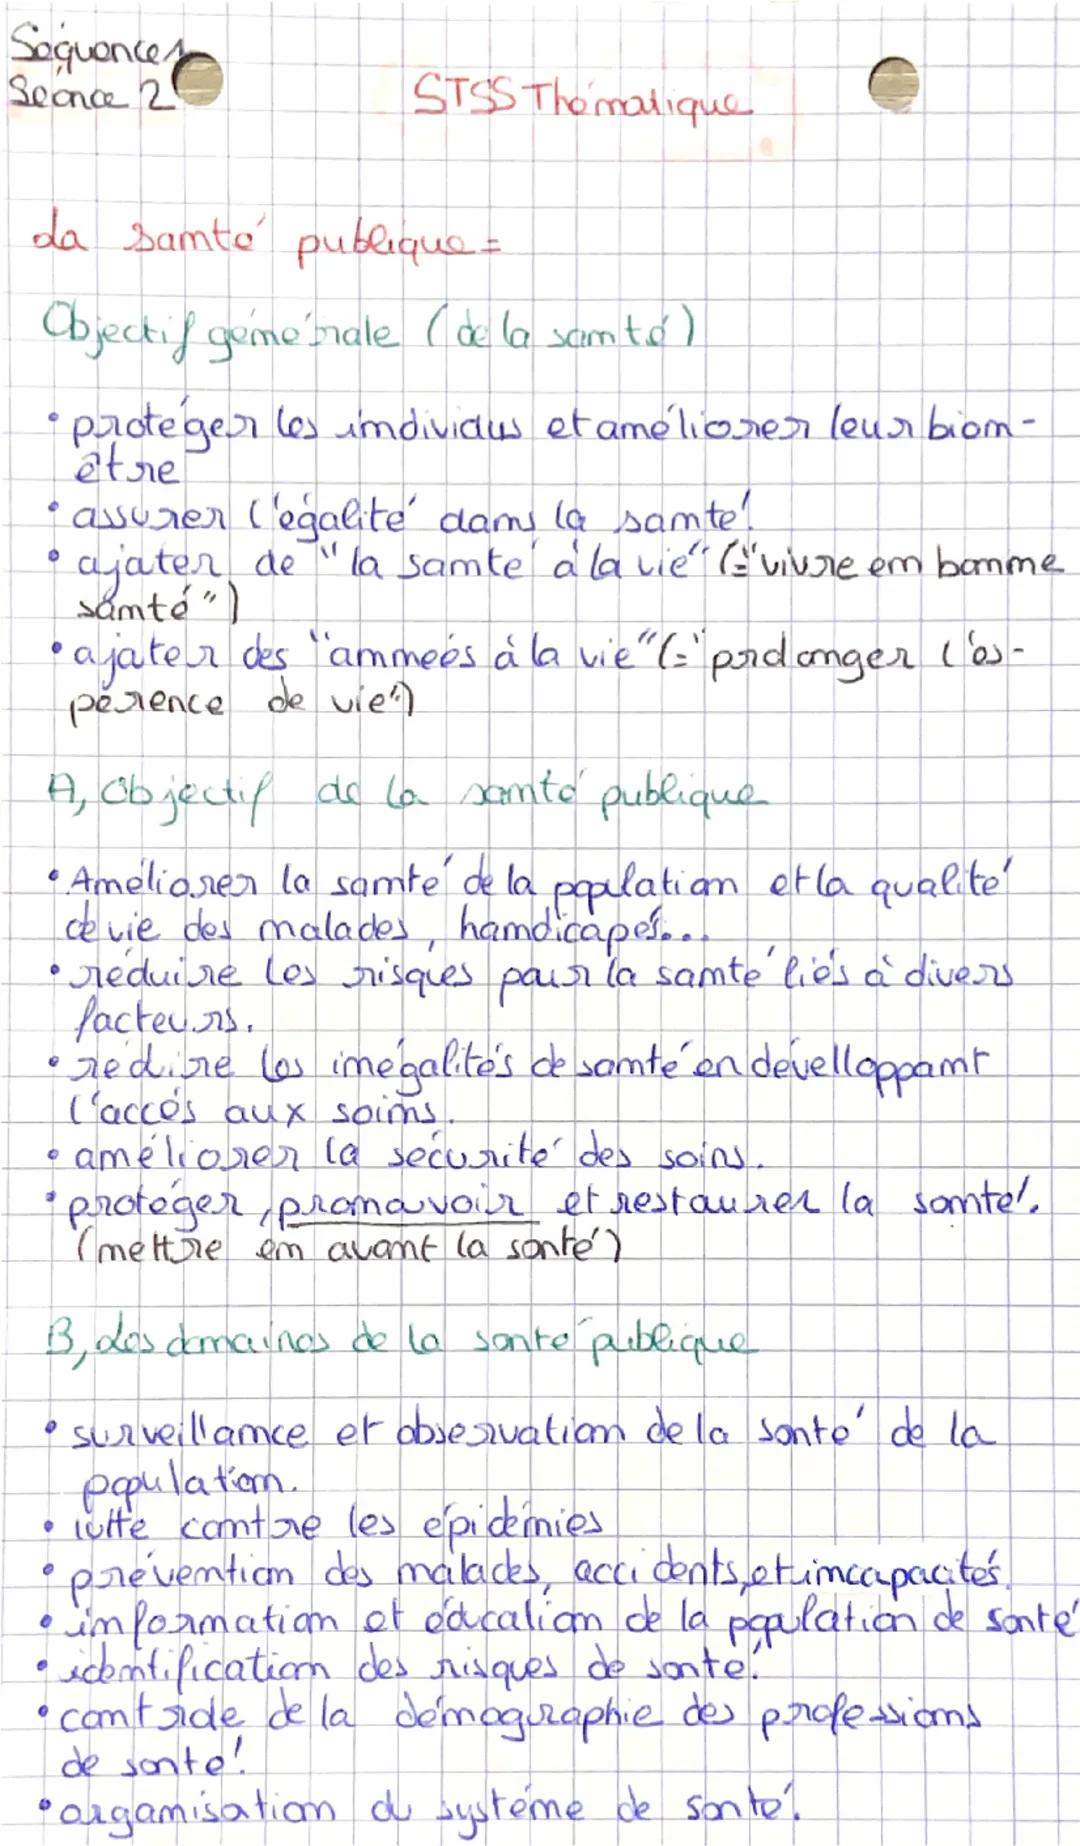 Séquence 1
Séance 2
STSS Thématique
La santé publique =
Objectif générale (de la santé)
• protéger les individus et améliorer leur bien-
être
• assurer l'égalité dans la santé.
• ajouter de "la santé à la vie" (="vivre en bonne
santé")
• ajouter des "années à la vie" (="prolonger l'es-
pérence de vie")
A, Objectif de la santé publique
• Améliorer la santé de la population et la qualité
de vie des malades, handicapés...
• réduire les risques pour la santé liés à divers
facteurs.
• rédire les inégalités de santé en dévelloppant
l'accès aux soins.
• améliorer la sécurité des soins.
• protéger, promouvoir et restaurer la santé.
(mettre en avant la santé)
B, Les domaines de la santé publique
• surveillance et observation de la santé de la
population.
• lutte contre les épidémies
• prévention des malades, accidents, et incapacités.
• information et éducation de la population de santé
• identification des risques de santé.
• controle de la démographie des professions
de santé.
• organisation du système de santé.